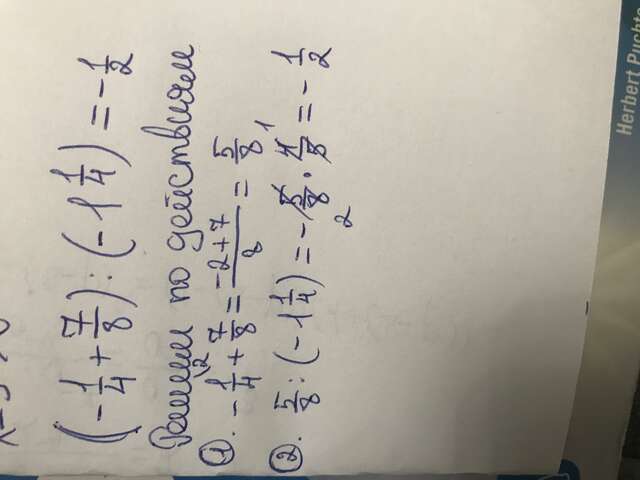 (-1/4 + 7/8) : (-1 1/4) = -1/2
Решим по действиям
①. -1/4 \2 + 7/8 = -2+7/8 = 5/8
②. 5/8 : (-1 1/4) = -5/8 2 · 4/5 1 = -1/2
Herbert Puchta